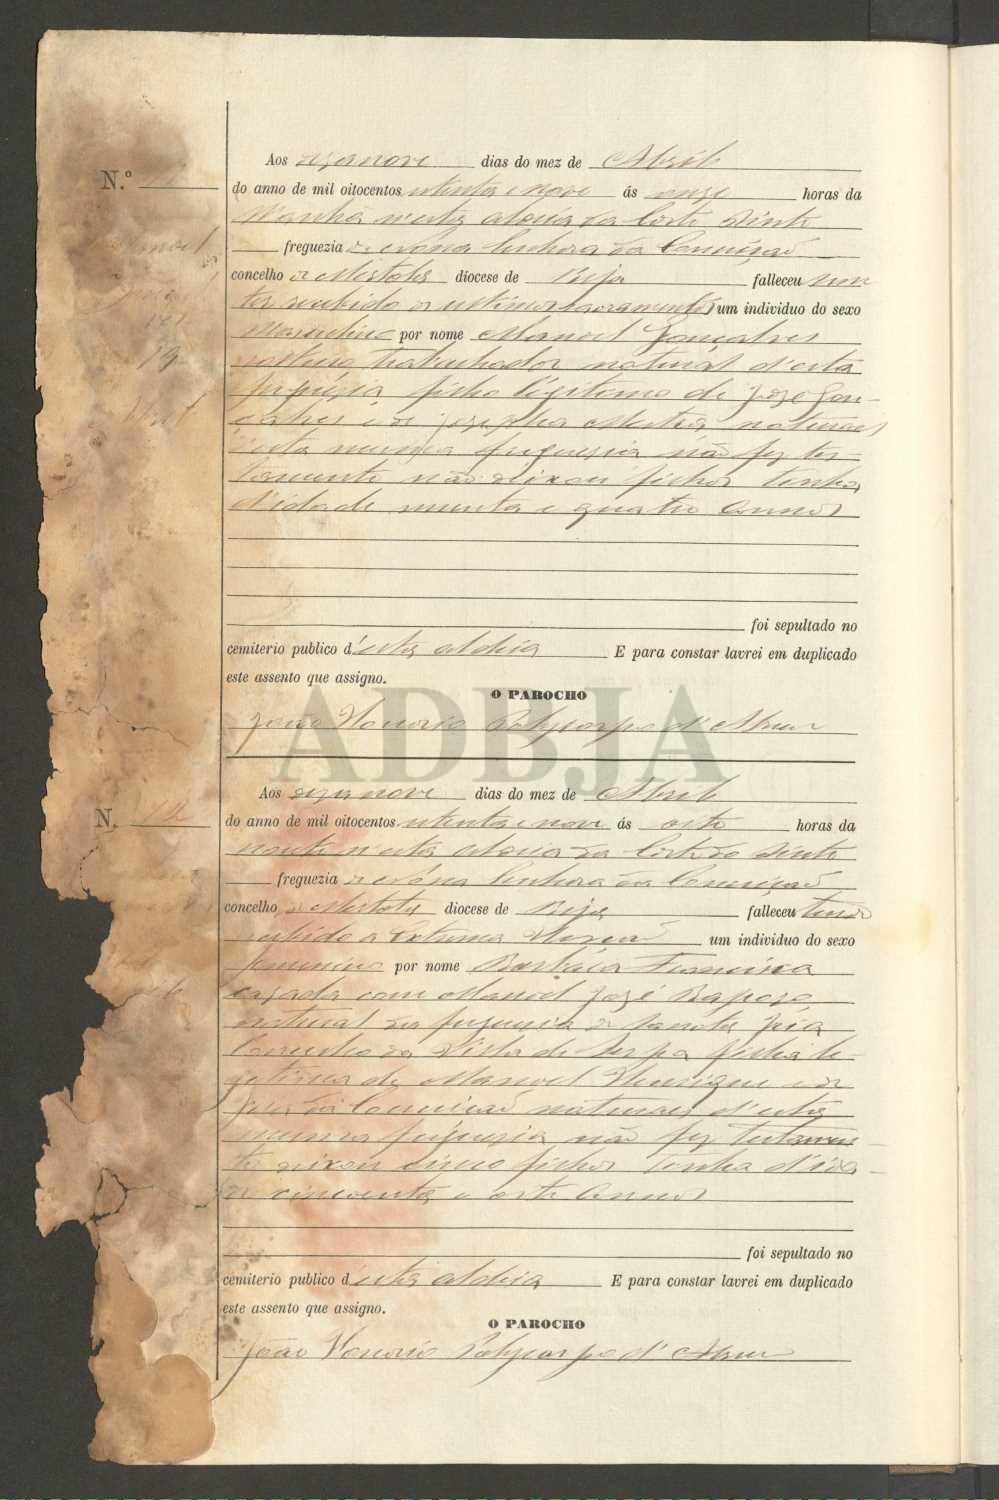 Aos dezanove dias do mez de Abril
N.º do anno de mil oitocentos oitenta e nove ás onze horas da
Manhã n'esta aldeia da Corte Pinto
freguezia de Nossa Senhora da Conceição
concelho de Mertola diocese de Beja falleceu
recebido os ultimos sacramentos um individuo do sexo
Masculino por nome Manoel Gonçalves
solteiro trabalhador natural d'esta
freguezia filho legitimo de Jozé Gon-
çalves e de Jozepha Mestra naturaes
d'esta mesma freguezia não fez tes-
tamento não deixou filhos tinha
d'idade e quatro annos
foi sepultado no
cemiterio publico d'esta aldeia E para constar lavrei em duplicado
este assento que assigno.
O PAROCHO
João Honorio Polycarpo d'Abreu
ADBJA
Aos dezanove dias do mez de Abril
N. 12 do anno de mil oitocentos oitenta e nove ás oito horas da
noute n'esta aldeia da Corte do Pinto
freguezia de Nossa Senhora da Conceição
concelho de Mertola diocese de Beja falleceu tendo
recebido a Extrema Unção um individuo do sexo
femenino por nome Barbara Francisca
cazada com Manoel Jozé Rapozo
natural da freguezia de Santa Iria
Concelho da Villa de Serpa filha le-
gitima de Manoel Henrique e de
da Conceição naturaes d'esta
mesma freguezia não fez testamen-
to deixou cinco filhos tinha d'ida-
de cincoenta e oito annos
foi sepultado no
cemiterio publico d'esta aldeia E para constar lavrei em duplicado
este assento que assigno.
O PAROCHO
João Honorio Polycarpo d'Abreu